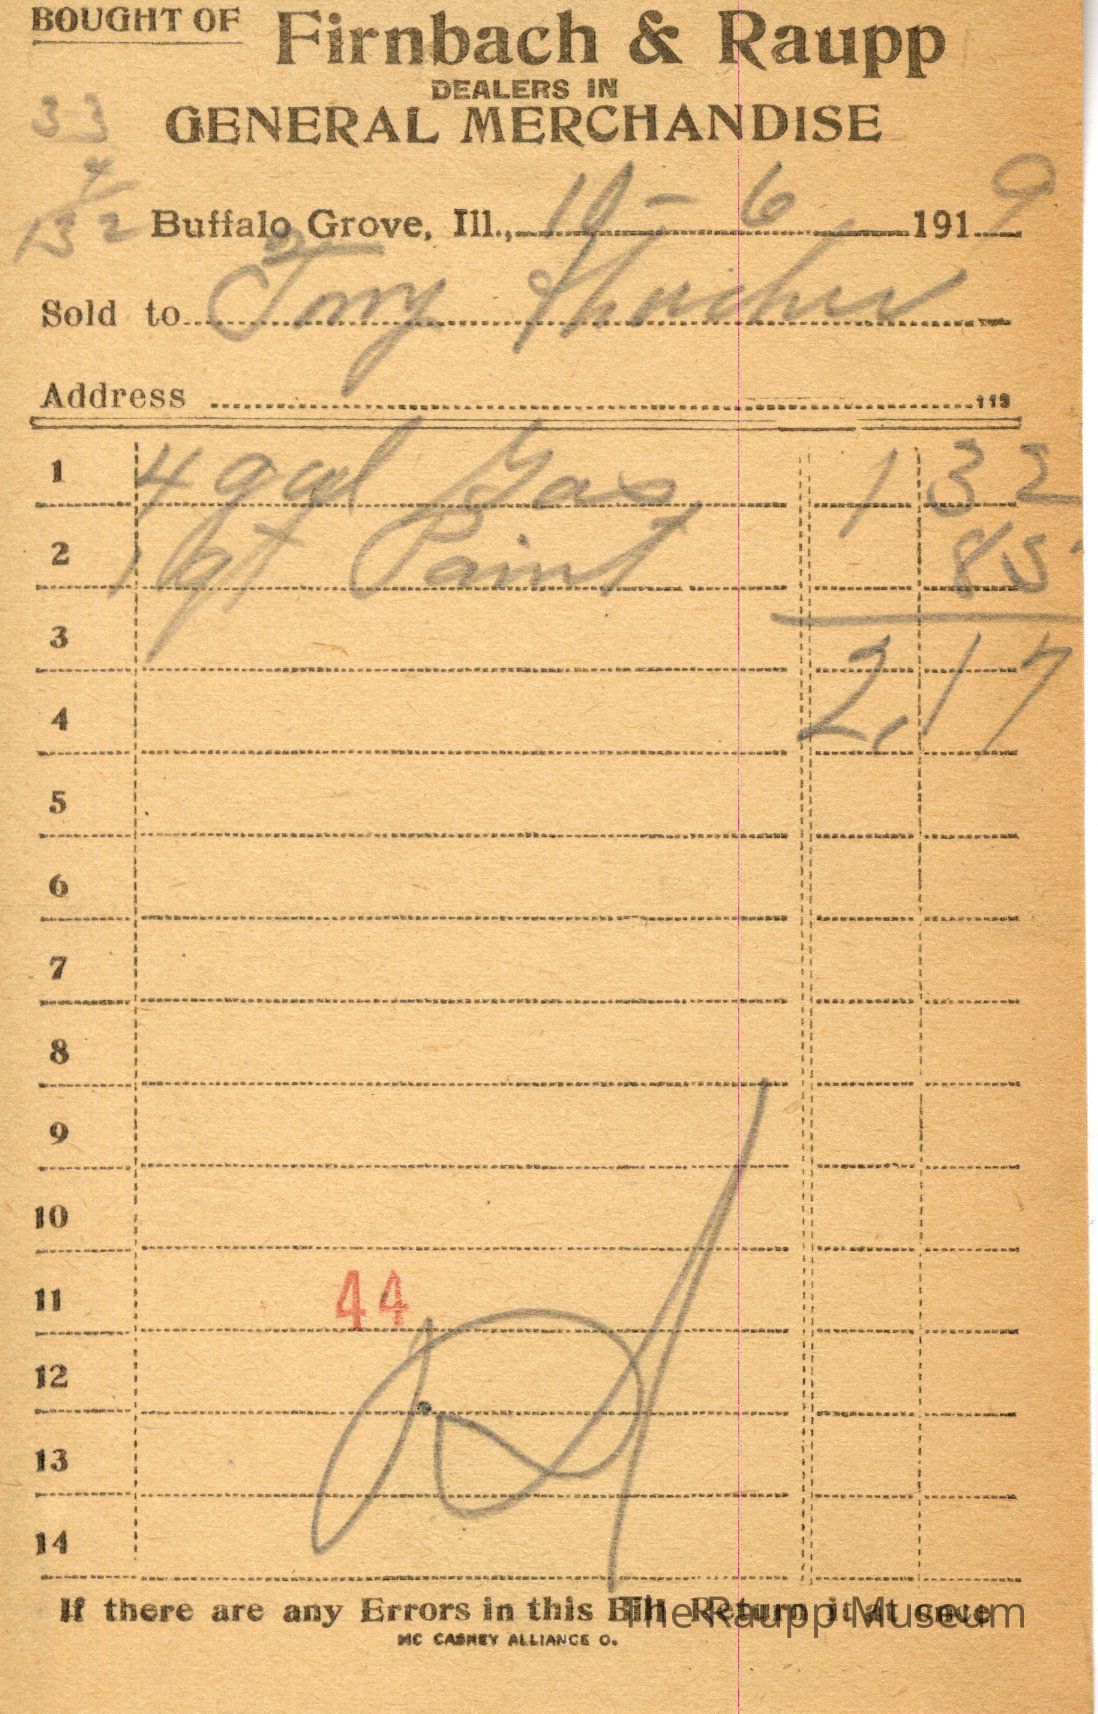 BOUGHT OF Firnbach & Raupp
DEALERS IN
GENERAL MERCHANDISE
33
4
132
Buffalo Grove, Ill., 10-6 1919
Sold to Tony
Address
113
1 4 gal Gas 1 32
2 1 qt Paint 85
3 2,17
4
5
6
7
8
9
10
11 44
12
13
14
If there are any Errors in this Bill Return it at once
The Raupp Museum
MC CASKEY ALLIANCE O.